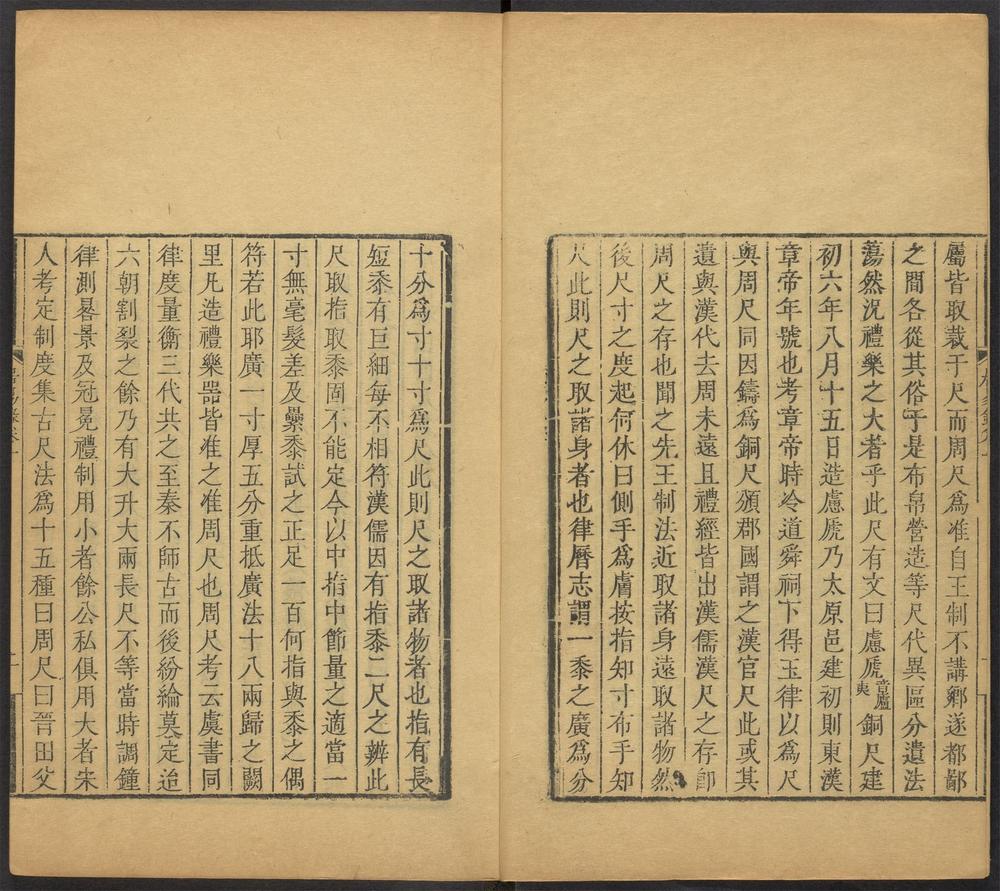 屬皆取裁于尺而周尺爲准自王制不講鄉遂都鄙
之間各從其俗于是布帛營造等尺代異區分遺法
蕩然況禮樂之大者乎此尺有文曰慮俿音廬夷銅尺建
初六年八月十五日造慮俿乃太原邑建初則東漢
章帝年號也考章帝時冷道舜祠下得玉律以爲尺
與周尺同因鑄爲銅尺頒郡國謂之漢官尺此或其
遺與漢代去周未遠且禮經皆出漢儒漢尺之存卽
周尺之存也聞之先王制法近取諸身遠取諸物然
後尺寸之度起何休曰側手爲膚按指知寸布手知
尺此則尺之取諸身者也律曆志謂一黍之廣爲分
十分爲寸十寸爲尺此則尺之取諸物者也指有長
短黍有巨細每不相符漢儒因有指黍二尺之辨此
尺取指取黍固不能定今以中指中節量之適當一
寸無毫髮差及纍黍試之正足一百何指與黍之偶
符若此耶廣一寸厚五分重抵廣法十八兩歸之闕
里凡造禮樂器皆准之准周尺也周尺考云虞書同
律度量衡三代共之至秦不師古而後紛綸莫定迨
六朝割裂之餘乃有大升大兩長尺不等當時調鐘
律測晷景及冠冕禮制用小者餘公私俱用大者朱
人考定制度集古尺法爲十五種曰周尺曰晉田父